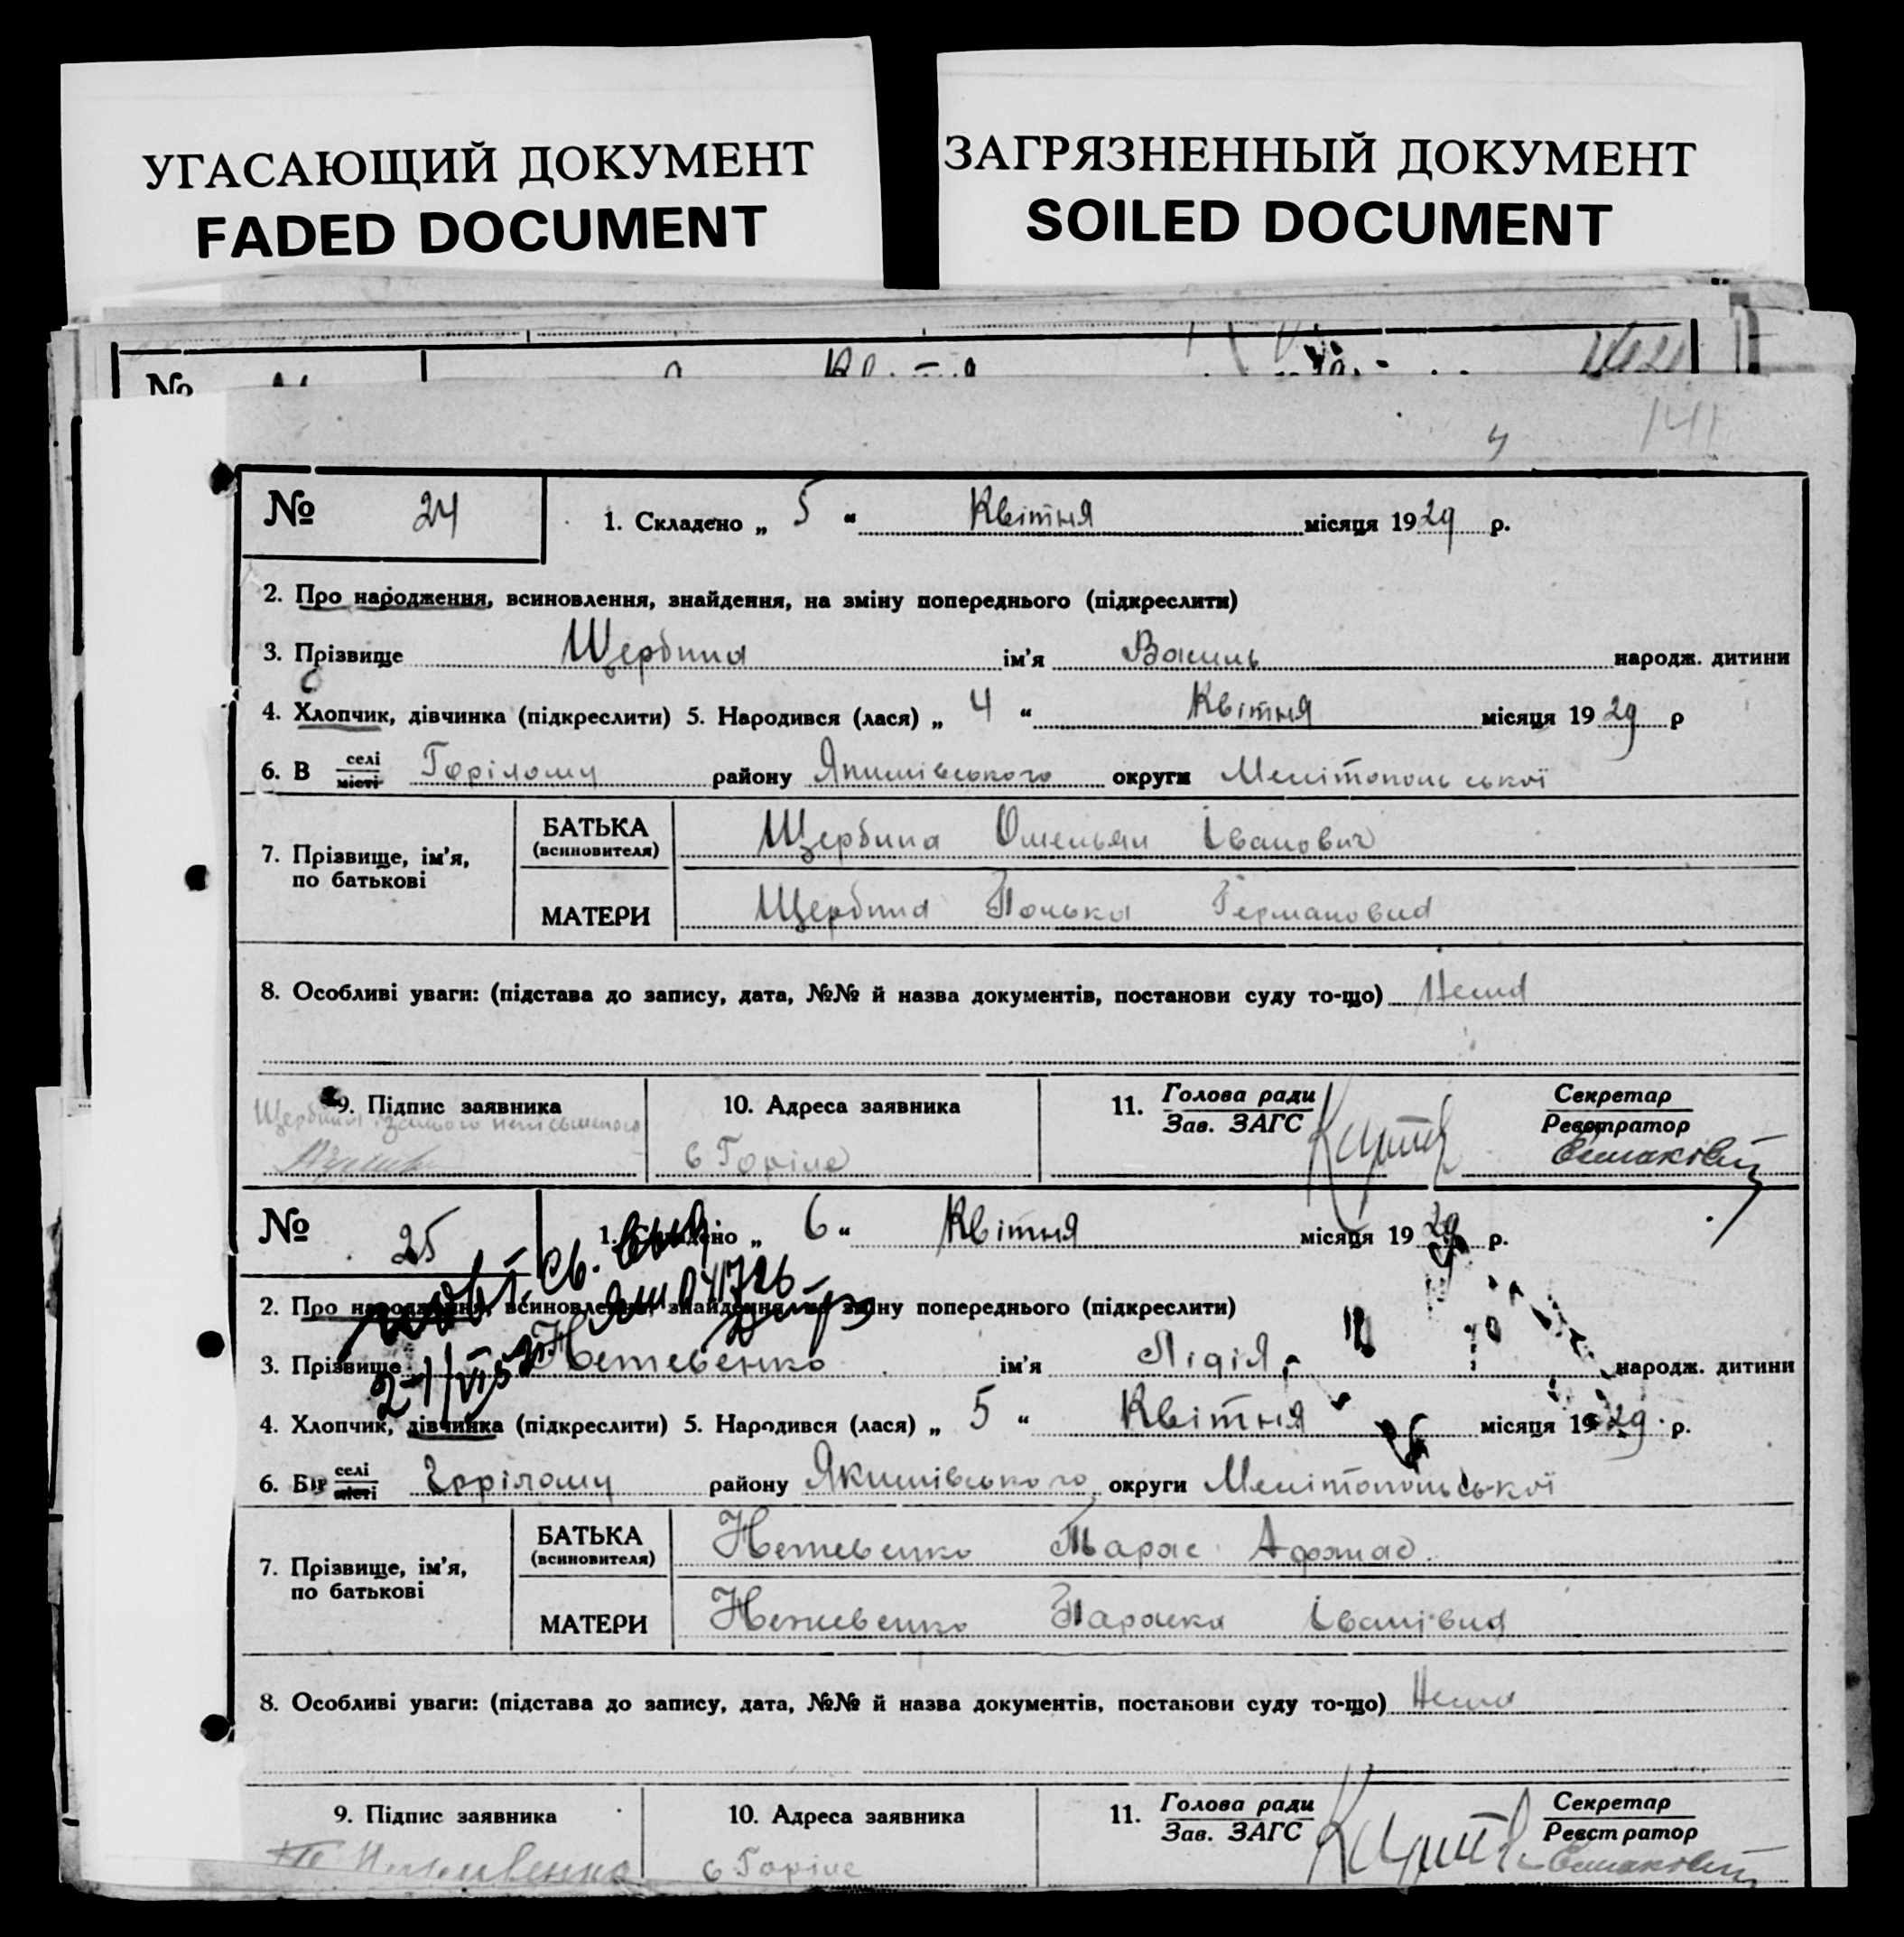 УГАСАЮЩИЙ ДОКУМЕНТ
FADED DOCUMENT
ЗАГРЯЗНЕННЫЙ ДОКУМЕНТ
SOILED DOCUMENT
№
4
141
№ 24 1. Складено „ 5 “ Квітня місяця 1929 р.
2. Про народження, всиновлення, знайдення, на зміну попереднього (підкреслити)
3. Прізвище Щербина ім'я Василь народж. дитини
4. Хлопчик, дівчинка (підкреслити) 5. Народився (лася) „ 4 “ Квітня місяця 1929 р
6. В селі місті Горілому району Якимівського округи Мелітопольської
7. Прізвище, ім'я, по батькові
БАТЬКА (всиновителя) Щербина Омельян Іванович
МАТЕРИ Щербина Германовна
8. Особливі уваги: (підстава до запису, дата, №№ й назва документів, постанови суду то-що) Нема
9. Підпис заявника
10. Адреса заявника
11. Голова ради Зав. ЗАГС
Секретар Реєстратор
с Горіле
№ 25 1. Складено „ 6 “ Квітня місяця 1929 р.
2. Про народження, всиновлення, знайдення, на зміну попереднього (підкреслити)
3. Прізвище Нетевенко ім'я Лідія народж. дитини
4. Хлопчик, дівчинка (підкреслити) 5. Народився (лася) „ 5 “ Квітня місяця 1929 р.
6. В селі місті Горілому району Якимівського округи Мелітопольської
7. Прізвище, ім'я, по батькові
БАТЬКА (всиновителя) Нетевенко Тарас Афанас.
МАТЕРИ Нетевенко Параска Іванівна
8. Особливі уваги: (підстава до запису, дата, №№ й назва документів, постанови суду то-що) Нема
9. Підпис заявника
10. Адреса заявника
11. Голова ради Зав. ЗАГС
Секретар Реєстратор
с Горіле